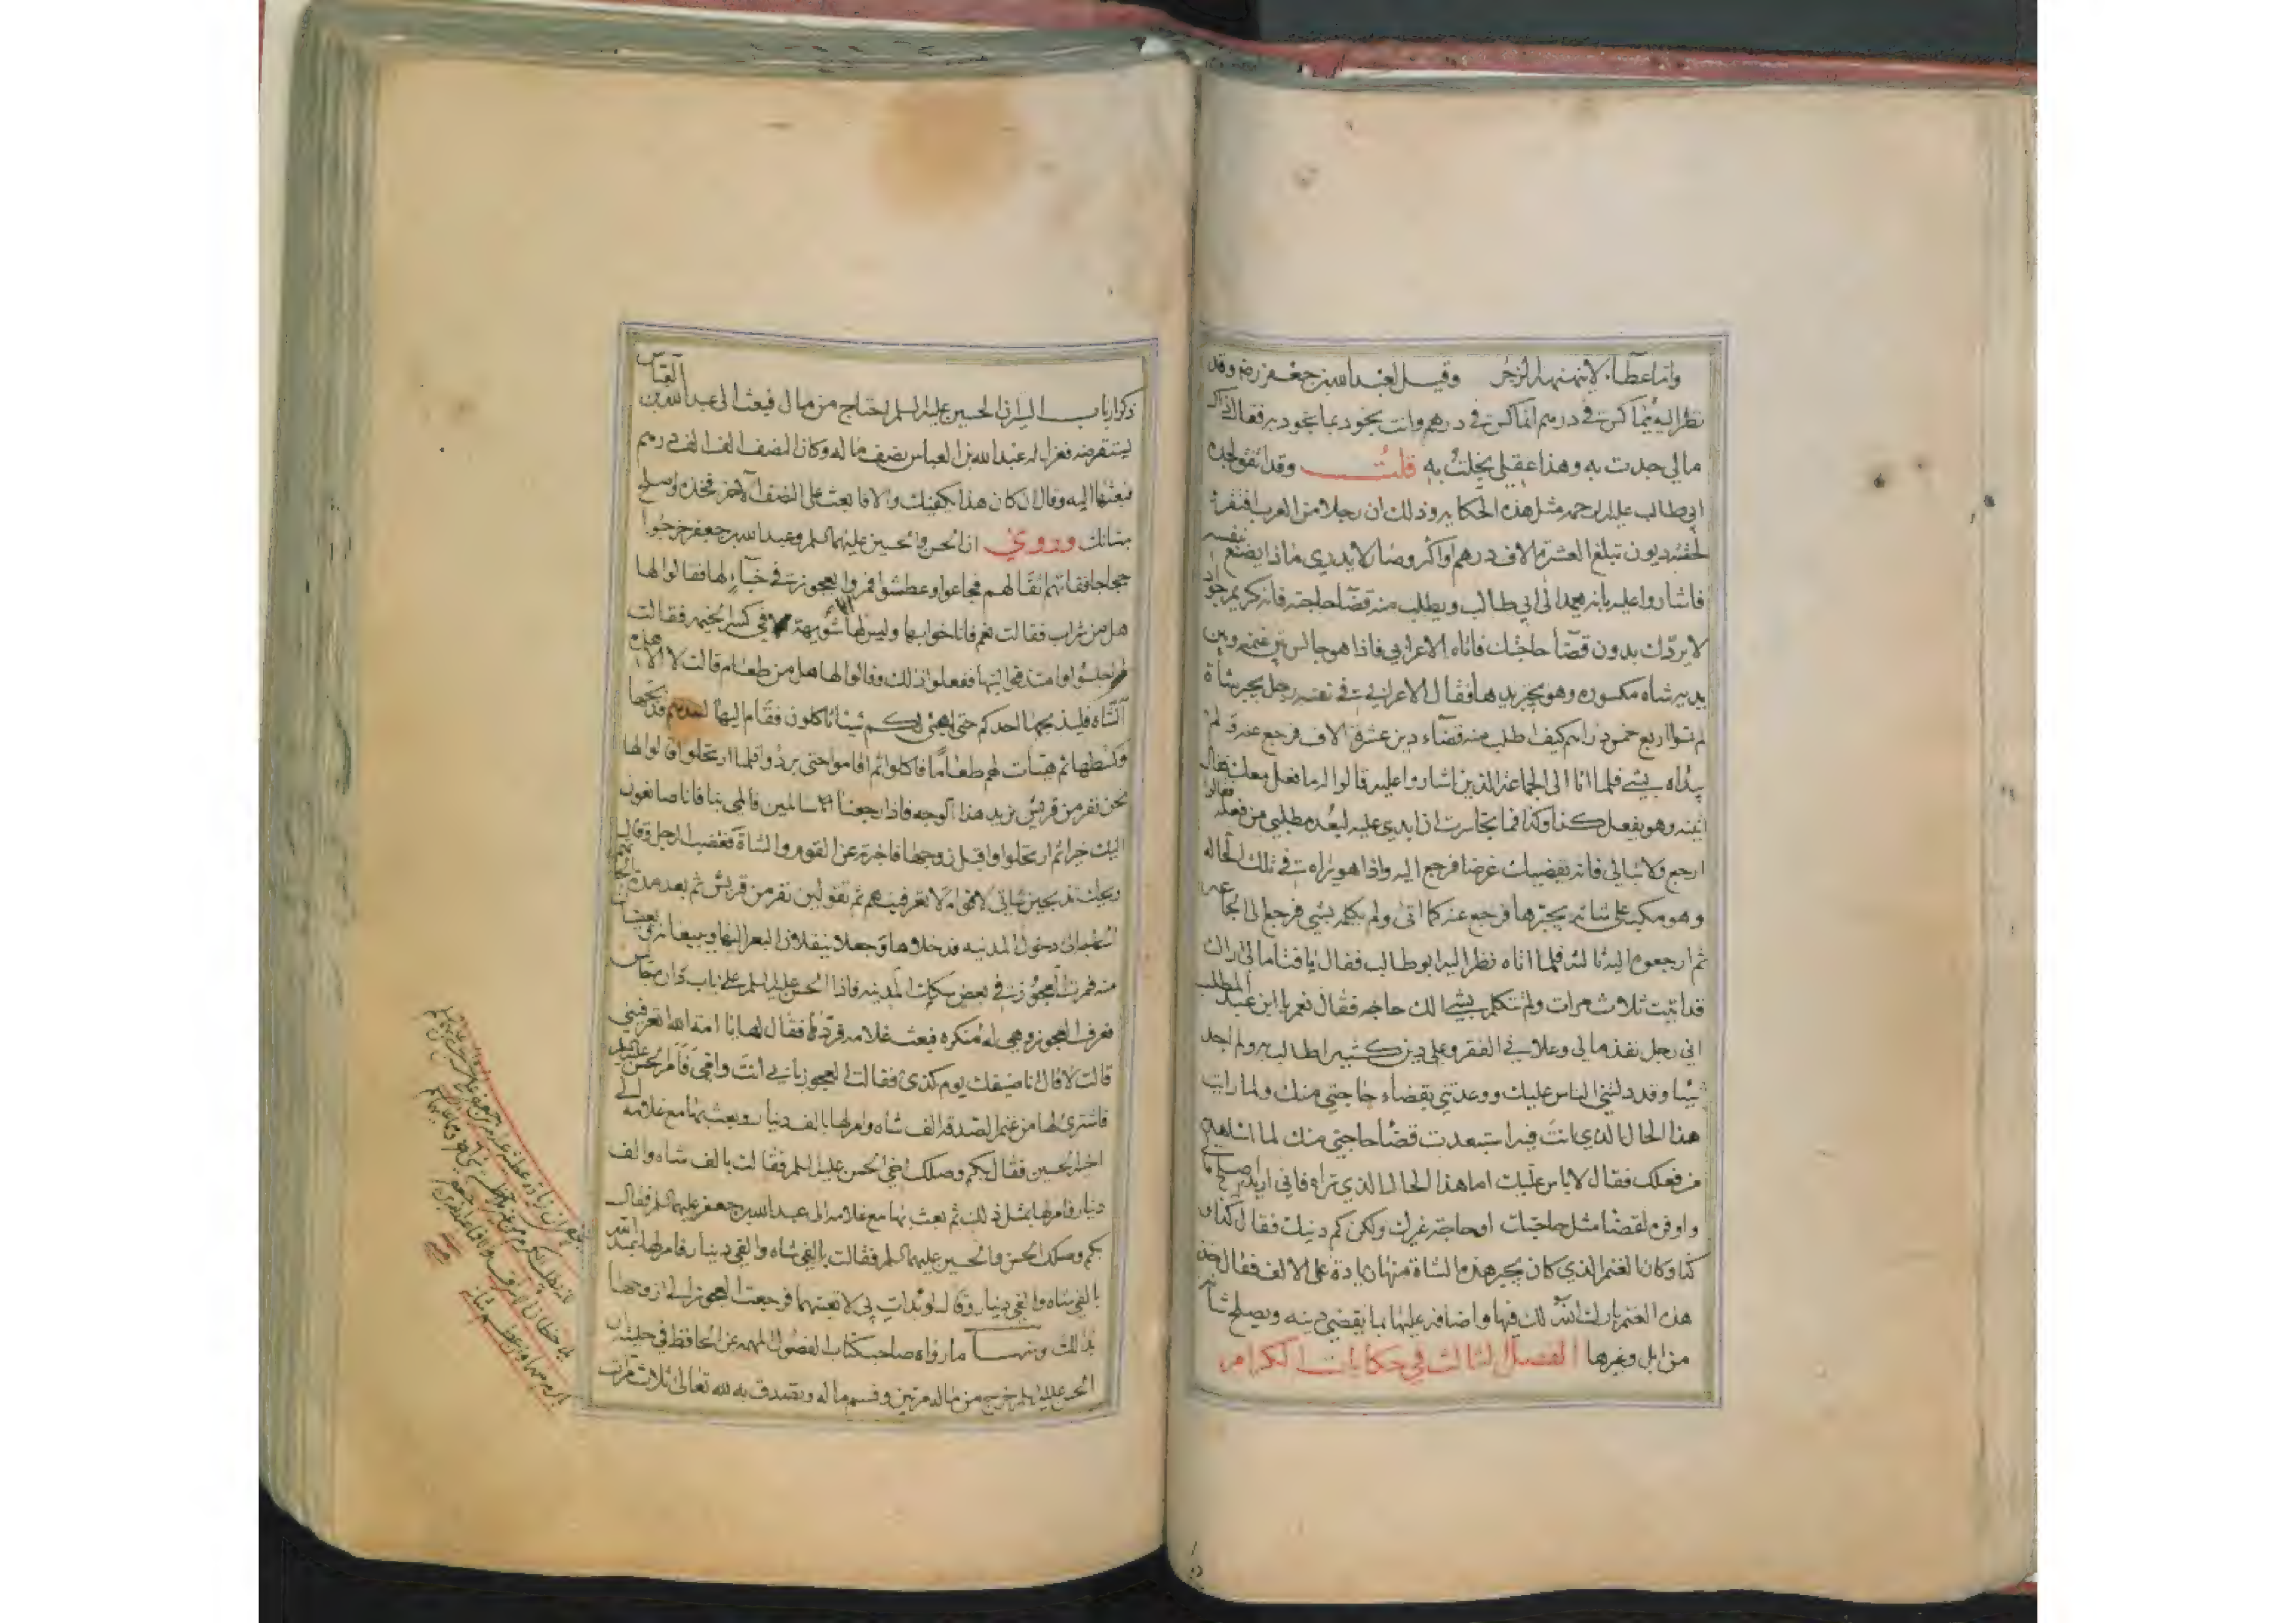 وانا عطآء لا تنهنهه الزجر وقيل لعبد الله بن جعفر رضه وقد
نظر اليه يماكس في درهم اتماكس في درهم وانت تجود بما تجود به فقال ذاك
مالي جدت به وهذا عقلي بخلت به قلت وقد اتفق لجده
ابي طالب عليه الرحمه مثل هذه الحكايه وذلك ان رجلا من العرب افتقر
لحقته ديون تبلغ العشرة الاف درهم او اكثر وصار لا يدري ماذا يصنع بنفسه
فاشاروا عليه بانه يمد الى ابي طالب ويطلب منه قضآ حاجته فانه كريم جواد
لا يردك بدون قضآ حاجتك فاتاه الاعرابي فاذا هو جالس بين غنمه وبين
يديه شاه مكسوره وهو يجبر يدها فقال الاعرابي في نفسه رجل يجبر شاة
لم تسوا اربع دراهم كيف اطلب منه قضآء دين عشرة الاف فرجع عنه ولم
يبداه بشيء فلما اتا الى الجماعة الذين اشاروا عليه قالوا له ما فعل معك فقال
اتيته وهو يفعل كذا وكذا فما تجاسرت ان ابدي عليه لبعد مطلبي من فعله فقالوا
ارجع ولا تبالي فانه يقضي لك غرضا فرجع اليه واذا هو يراه في تلك الحاله
وهو مكب على شاته يجبرها فرجع عنه كما اتى ولم يكلمه بشيء فرجع الى الجماعه
ثم ارجعوه اليه ثالثه فلما اتاه نظر اليه ابو طالب فقال يا فتا مالي اراك
قد اتيت ثلاث مرات ولم تتكلم بشيء الك حاجه فقال نعم يا ابن عبد المطلب
اني رجل نفذ مالي وعلاني الفقر وعلي دين كثير اطالب به ولم اجد
شيئا وقد دلني الناس عليك ووعدتني بقضاء حاجتي منك ولما رايت
هذا الحال الذي انت فيه استبعدت قضا حاجتي منك لما اشاهد
من فعلك فقال لا باس عليك اما هذا الحال الذي تراه فاني اريد به اصلح مالي
واوفره لقضا مثل حاجتك او حاجة غيرك ولكن كم دينك فقال كذا و
كذا وكان الغنم الذي كان يجبر هذه الشاة منها زيادة على الالف فقال خذ
هذه الغنم بارك الله لك فيها واضافه عليها بما يقضي دينه ويصلح شانه
من ابل وغيرها الفصل الثالث في حكايات الكرام
ذكر ارباب السير ان الحسين عليه السلم احتاج من مال فبعث الى عبد الله بن العباس
ليستقرضه فعزل له عبد الله بن العباس نصف ماله وكان النصف الف الف درهم
فبعثها اليه وقال ان كان هذا يكفيك والا فابعث على النصف الآخر فخذه وصلح
شانك وروي ان الحسن والحسين عليهما السلم وعبد الله بن جعفر خرجوا
حجاجا ففاتتهم اثقالهم فجاعوا وعطشوا فمروا بعجوزة في خبآء لها فقالوا لها
هل من شراب فقالت نعم فاناخوا بها وليس لها الا شويهة في كسر الخيمه فقالت
اجلسوا وامتذقوا لبنها ففعلوا ذلك وقالوا لها هل من طعام قالت لا الا هذه
الشاة فليذبحها احدكم حتى اهيئ لكم شيئا تاكلون فقام اليها احدهم فذبحها
وكشطها ثم هيات لهم طعاما فاكلوا ثم اقاموا حتى بردوا فلما ارتحلوا قالوا لها
نحن نفر من قريش نريد هذا الوجه فاذا رجعنا سالمين فالمي بنا فانا صانعون
اليك خيرا ثم ارتحلوا واقبل زوجها فاخبرته عن القوم والشاة فغضب الرجل وقال
ويحك تذبحين شاتي لاقوام لا تعرفيهم ثم تقولين نفر من قريش ثم بعد مدة
دخول المدينه فدخلاها وجعلا ينقلان البعر اليها ويبيعانه
منه فمرت العجوزة في بعض سكك المدينه فاذا الحسن عليه السلم على باب داره جالس
فعرف العجوز وهي له منكره فبعث غلامه فردها فقال لها يا امة الله تعرفيني
قالت لا قال انا ضيفك يوم كذى فقالت العجوز بابي انت وامي فامر الحسن عليه السلم
فاشترى لها من غنم الصدقه الف شاه وامر لها بالف دينار وبعث بها مع غلامه الى
اخيه الحسين فقال بكم وصلك اخي الحسن عليه السلم فقالت بالف شاه والف
دينار فامر لها بمثل ذلك ثم بعث بها مع غلامه الى عبد الله بن جعفر عليهما السلم فقال
بكم وصلك الحسن والحسين عليهما السلم فقالت بالفي شاه والفي دينار فامر لها عبد الله
بالفي شاه والفي دينار وقال لو بدات بي لاتعبتهما فرجعت العجوز الى زوجها
بذلك ومنها ما رواه صاحب كتاب الفصول المهمه عن الحافظ في حليته ان
الحسن عليه السلم خرج من ماله مرتين وقسم ماله وتصدق به لله تعالى ثلاث مرات